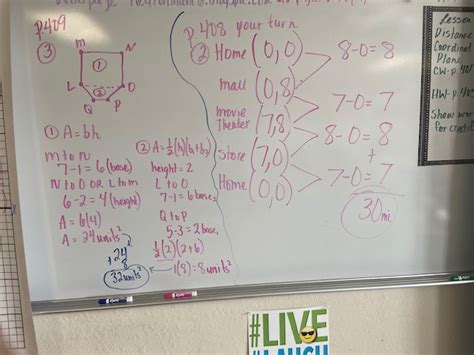 p409
③
M N
①
L ② O
Q P
① A=bh
M to N
7-1=6 (base)
N to O OR L to M
6-2=4 (height)
A=6(4)
A=24units²
24
+8
32units²
② A=½(h)(b₁+b₂)
height=2
L to O
7-1=6 bases
Q to P
5-3=2 base₂
½(2)(2+6)
1(8)=8units²
p.408 your turn
② Home (0,0)
8-0=8
mall (0,8)
7-0=7
movie
theater (7,8)
8-0=8
store (7,0)
+
7-0=7
Home (0,0)
30mi
Lesson
Distance
Coordinat
Plane
CW-p.401
HW-p.409
Show wor
for credit
#LIVE
#LAUGH